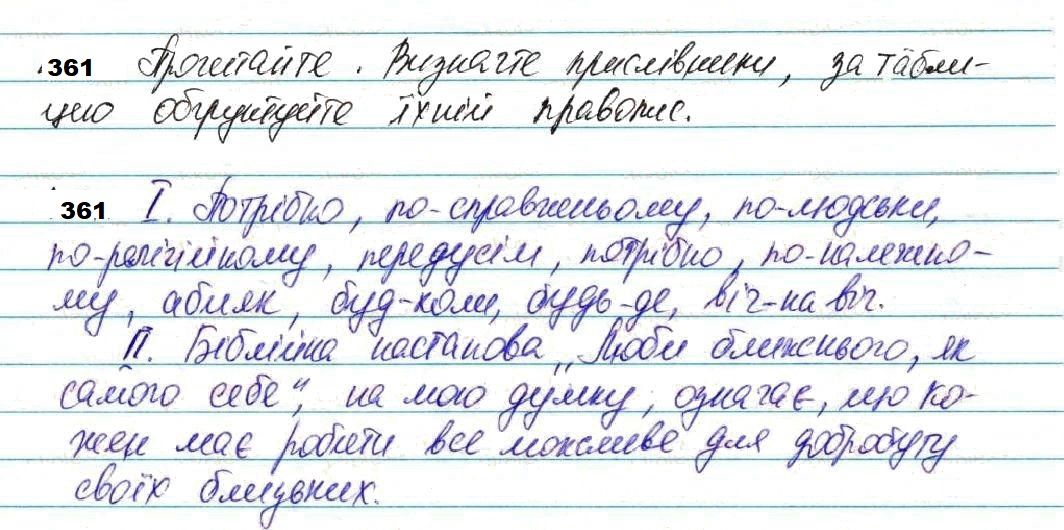 361 Прочитайте. Визначте прислівники, за табли-
цею обґрунтуйте їхній правопис.
361 I. Потрібно, по-справжньому, по-людськи,
по-релігійному, передусім, потрібно, по-належно-
му, абияк, буд-коли, будь-де, віч-на віч.
II. Біблійна настанова „Люби ближнього, як
самого себе", на мою думку, означає, що ко-
жен має робити все можливе для добробуту
своїх близьких.